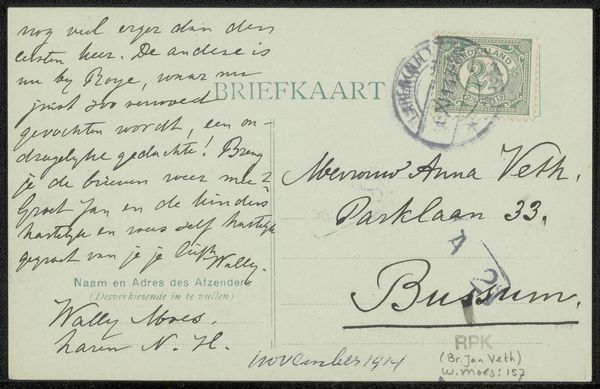 nog veel erger dan den
eersten keer. De andere is
nu bij Roye, waar nu
juist zoo verwoed
gevochten wordt, een on-
dragelijke gedachte! Breng
je de brieven weer mee?
Groet Jan en de kinders
hartelijk en wees zelf hartelijk
gegroet van je je liefh.
Wally.
Naam en Adres des Afzenders
(Desverkiezende in te vullen)
Wally Moes.
Laren N. H.
BRIEFKAART
NEDERLAND
2½
CENT
Mevrouw Anna Veth.
Parklaan 33.
Bussum.
A
november 1914
RPK
(Br. Jan Veth)
W. Moes: 157